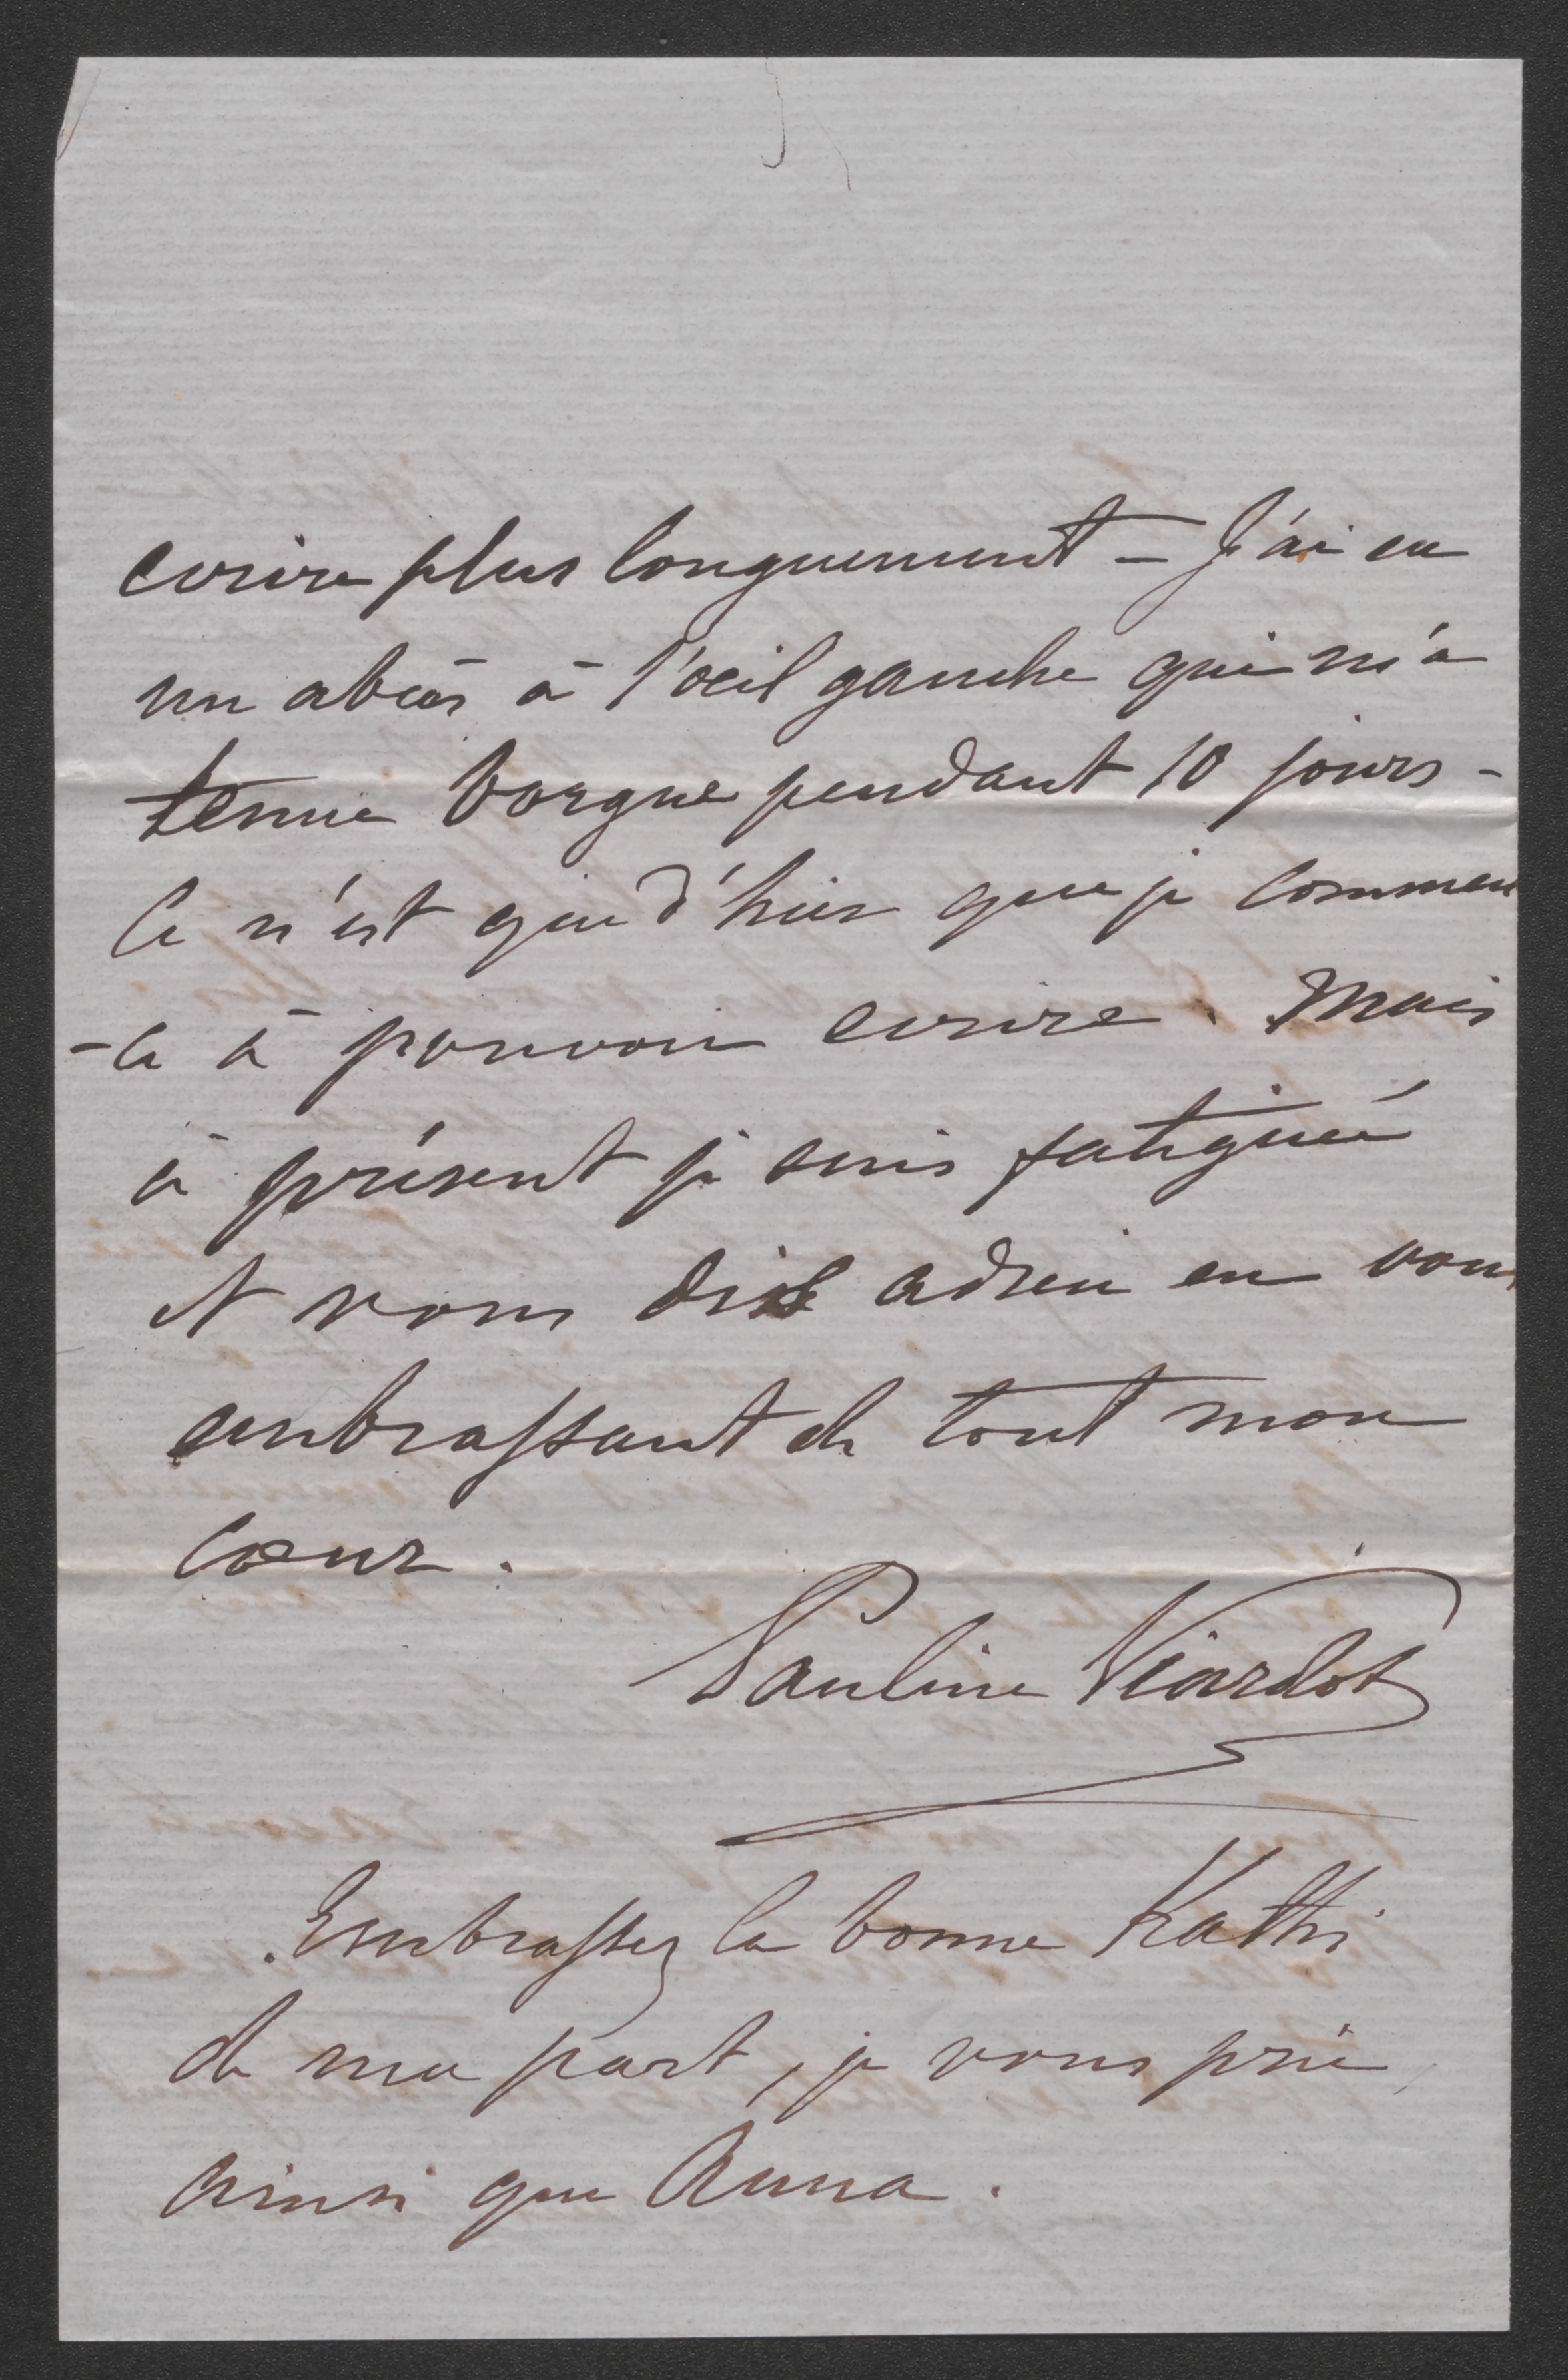 ecrire plus longuement – J'ai eu
un abcès à l'oeil gauche qui m'a
tenue borgne pendant 10 jours –
Ce n'est que d'hier que je commen
-ce à pouvoir ecrire. Mais
à présent je suis fatiguée
et vous dis adieu en vous
embrassant de tout mon
cœur.
Pauline Viardot
Embrassez la bonne Kathi
de ma part, je vous prie,
ainsi que Anna.